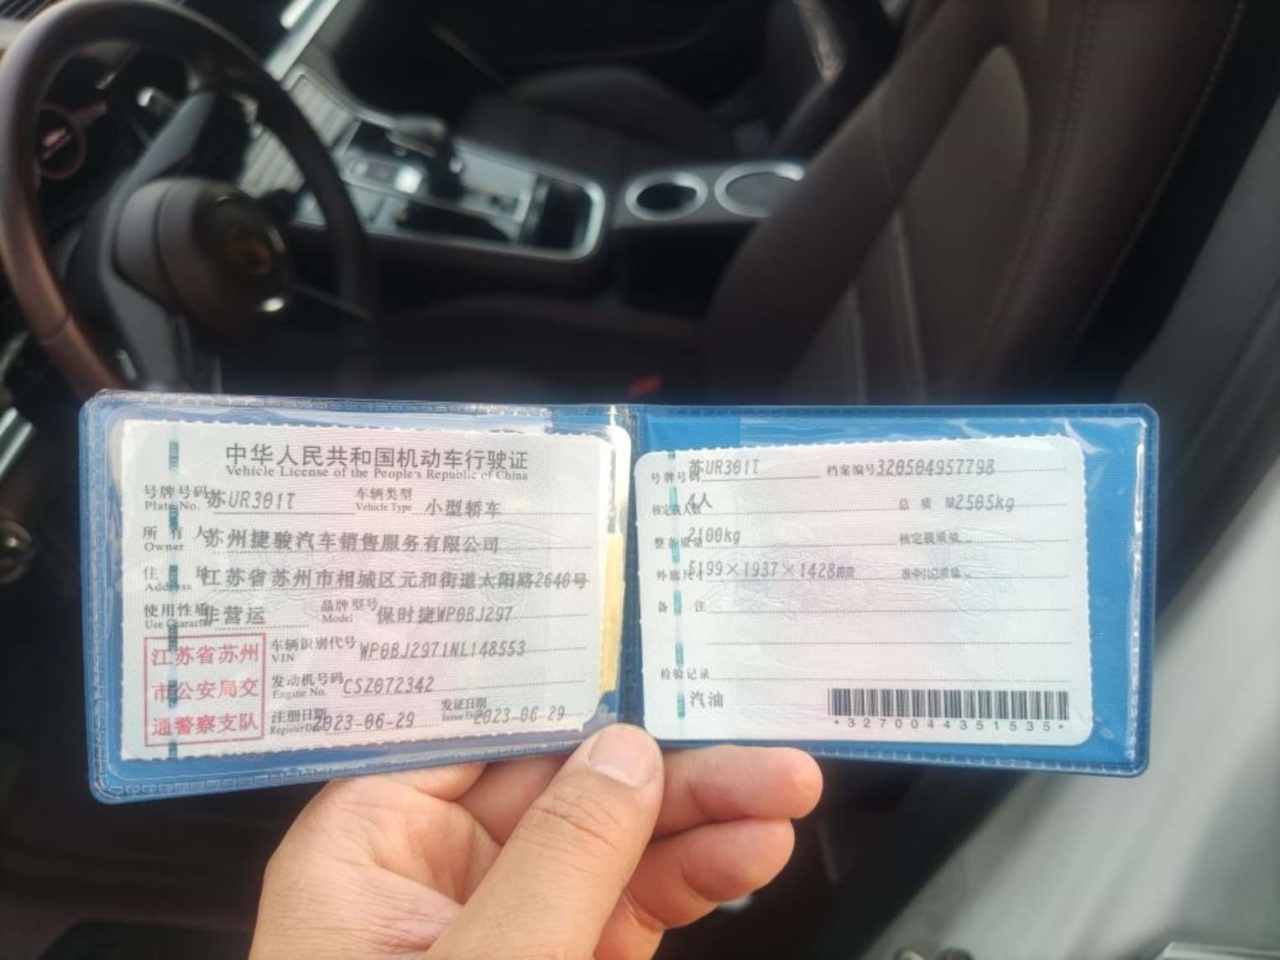 中华人民共和国机动车行驶证
Vehicle License of the People's Republic of China
号牌号码 苏UR301T 车辆类型 小型轿车
Plate No. Vehicle Type
所有人 苏州捷骏汽车销售服务有限公司
Owner
住址 江苏省苏州市相城区元和街道太阳路2640号
Address
使用性质 非营运 品牌型号 保时捷WP0BJ297
Use Character Model
江苏省苏州
市公安局交
通警察支队
车辆识别代号 WP0BJ2971NL148553
VIN
发动机号码 CSZ072342
Engine No.
注册日期 2023-06-29 发证日期 2023-06-29
Register Date Issue Date
号牌号码 苏UR301T 档案编号 320504957798
核定载人数 4人 总质量 2505kg
整备质量 2100kg 核定载质量 --
外廓尺寸 5199×1937×1428mm 准牵引总质量 --
备注
检验记录
汽油
*3270044351535*